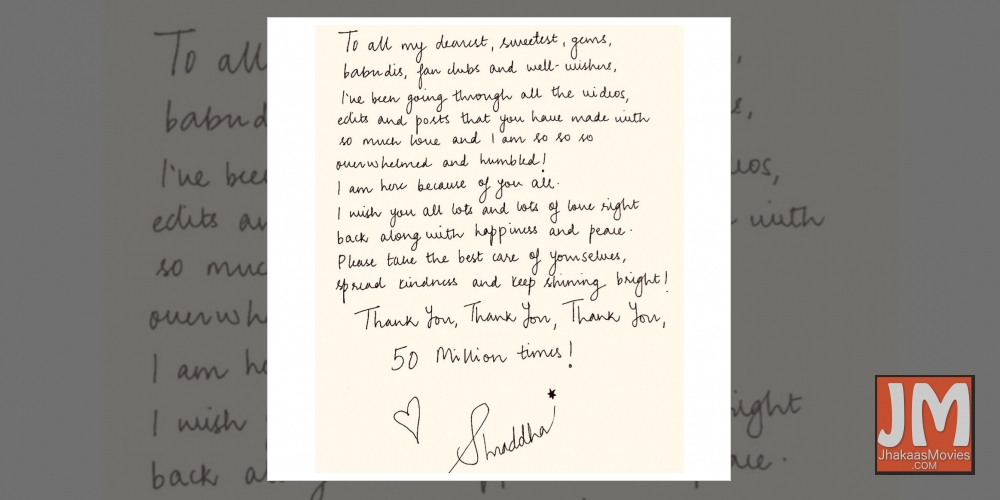 To all my dearest, sweetest, gems,
babudis, fan clubs and well-wishers,
I've been going through all the videos,
edits and posts that you have made with
so much love and I am so so so
overwhelmed and humbled!
I am here because of you all.
I wish you all lots and lots of love right
back along with happiness and peace.
Please take the best care of yourselves,
spread kindness and keep shining bright!
Thank You, Thank You, Thank You,
50 Million times!
Shraddha
JM
JhakaasMovies
.COM